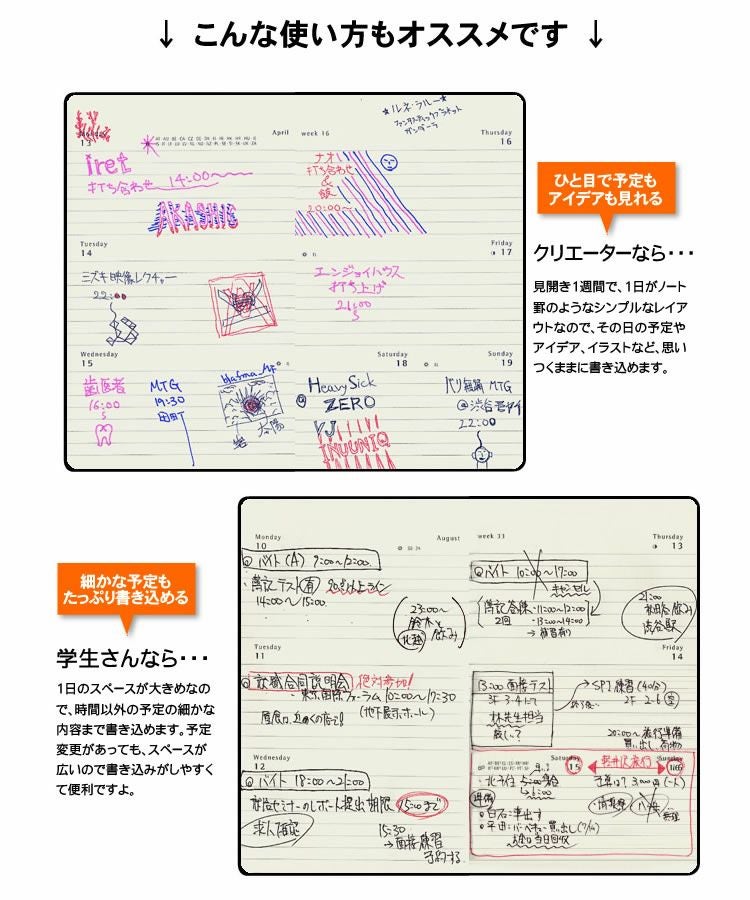 ↓ こんな使い方もオススメです ↓
★ルネ・ラルー★
ファンタスティックプラネット
ガンダーラ
Monday
13
April
week 16
Thursday
16
iret
打ち合わせ 14:00〜
AKASHIC
ナオ
打ち合わせ
&
飯
20:00〜
Tuesday
14
Friday
17
ミズキ映像レクチャー
22:00
エンジョイハウス
打ち上げ
21:00
Wednesday
15
Saturday
18
Sunday
19
歯医者
16:00
MTG
19:30
田町
太陽
Heavy Sick
ZERO
VJ
INUUNIQ
MTG
22:00
ひと目で予定も
アイデアも見れる
クリエーターなら・・・
見開き1週間で、1日がノート
罫のようなシンプルなレイア
ウトなので、その日の予定や
アイデア、イラストなど、思い
つくままに書き込めます。
細かな予定も
たっぷり書き込める
学生さんなら・・・
1日のスペースが大きめなの
で、時間以外の予定の細かな
内容まで書き込めます。予定
変更があっても、スペースが
広いので書き込みがしやすく
て便利ですよ。
Monday
10
August
week 33
Thursday
13
バイト (A) 9:00〜12:00
簿記テスト
14:00〜15:00
23:00〜
鈴木と
飲み
バイト 10:00〜17:00
キャンセル
11:00〜12:00
2回 ・13:00〜14:00
→ 補習有り
21:00
飲み
渋谷駅
Tuesday
11
Friday
14
就職合同説明会 絶対参加!
東京国際フォーラム 10:00〜17:30
(地下展示ホール)
13:00 面接テスト
3F 3-4にて
林先生担当
厳しい?
SPI練習 (40分)
20:00〜旅行準備
買い出し
Wednesday
12
Saturday
15
Sunday
16
バイト 18:00〜21:00
セミナーのレポート提出期限 15:00まで
求人確定
15:30
→ 面接練習
予約する
軽井沢旅行
準備